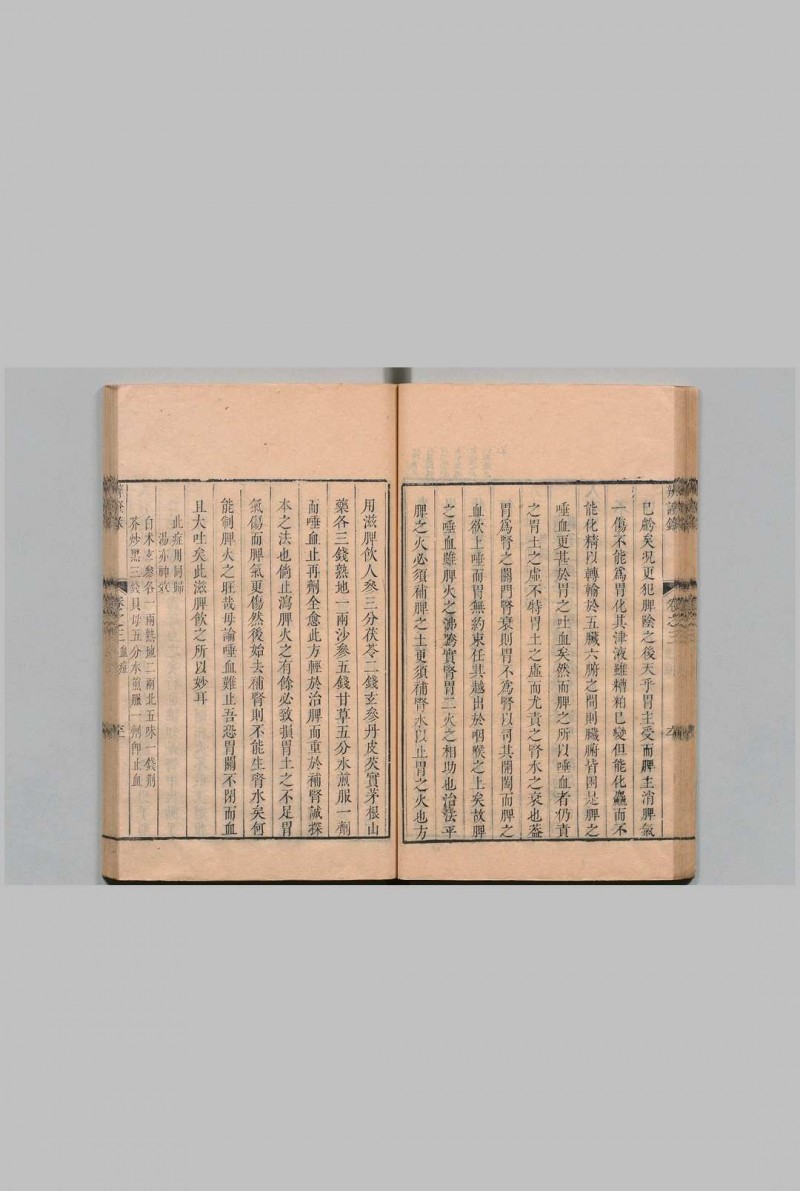 辨證錄
卷之三
已虧矣况更犯脾陰之後天乎胃主受而脾主消脾氣
一傷不能爲胃化其津液雖糟粕已變但能化麤而不
能化精以轉輸於五臟六腑之間則臟腑皆困是脾之
唾血更甚於胃之吐血矣然而脾之所以唾血者仍責
之胃土之虛不特胃土之虛而尤責之腎水之衰也葢
胃爲腎之關門腎衰則胃不爲腎以司其開闔而脾之
血欲上唾而胃無約束任其越出於咽喉之上矣故脾
之唾血雖脾火之沸騰實腎胃二火之相助也治法平
脾之火必須補脾之土更須補腎水以止胃之火也方
用滋脾飲人參三分茯苓二錢玄參丹皮芡實茅根山
藥各三錢熟地一兩沙參五錢甘草五分水煎服一劑
而唾血止再劑全愈此方輕於治脾而重於補腎誠探
本之法也倘止瀉脾火之有餘必致損胃土之不足胃
氣傷而脾氣更傷然後始去補腎則不能生腎水矣何
能制脾火之旺哉毋論唾血難止吾恐胃關不閉而血
且大吐矣此滋脾飲之所以妙耳
此症用同歸
湯亦神效
白朮玄參各一兩熟地二兩北五味一錢荆
芥炒黑三錢貝母五分水煎服一劑卽止血
辨證錄
卷之三血症